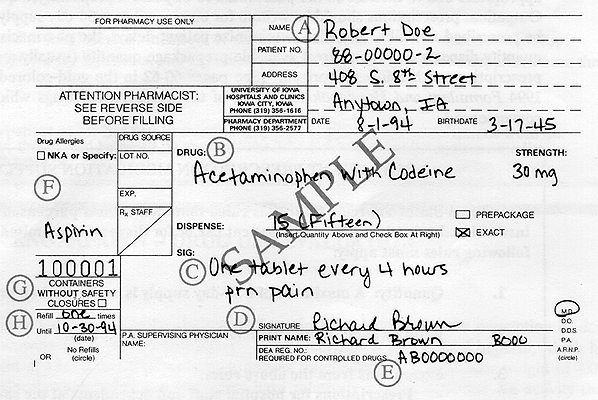 FOR PHARMACY USE ONLY
NAME A Robert Doe
PATIENT NO. 88-00000-2
ADDRESS 408 S. 8th Street
UNIVERSITY OF IOWA
HOSPITALS AND CLINICS
IOWA CITY, IOWA
PHONE (319) 356-1616
Anytown, IA
PHARMACY DEPARTMENT
PHONE (319) 356-2577
DATE 8-1-94 BIRTHDATE 3-17-45
ATTENTION PHARMACIST:
SEE REVERSE SIDE
BEFORE FILLING
Drug Allergies
☐ NKA or Specify:
F
Aspirin
DRUG SOURCE
LOT NO.
EXP.
Rx STAFF
DRUG: B STRENGTH:
Acetaminophen With Codeine 30 mg
SAMPLE
DISPENSE: 15 (Fifteen)
(Insert Quantity Above and Check Box At Right)
☐ PREPACKAGE
☒ EXACT
SIG:
C One tablet every 4 hours
prn pain
100001
G CONTAINERS
WITHOUT SAFETY
CLOSURES ☐
H Refill one times
Until 10-30-94
(date)
OR No Refills
(circle)
P.A. SUPERVISING PHYSICIAN
NAME:
D
SIGNATURE Richard Brown
PRINT NAME: Richard Brown B000
DEA REG. NO.:
REQUIRED FOR CONTROLLED DRUGS AB0000000
E
M.D.
D.O.
D.D.S.
P.A.
A.R.N.P.
(circle)